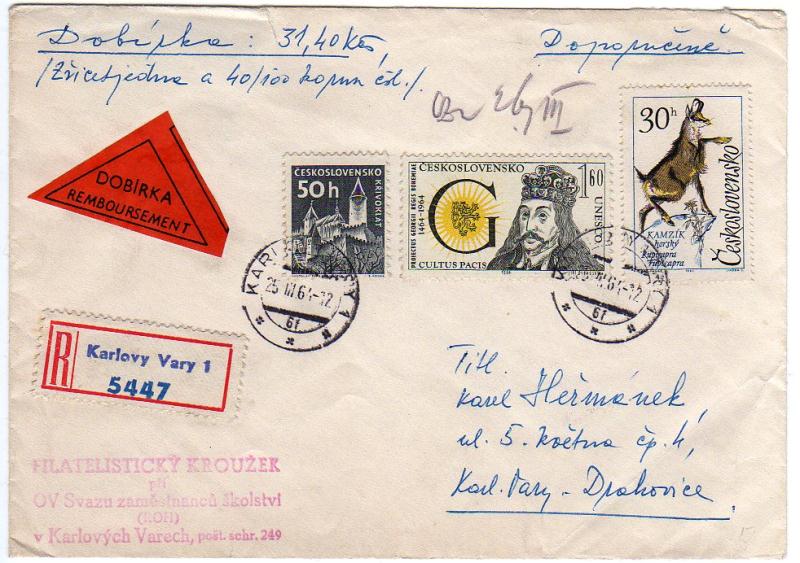 Dobírka : 31,40 Kčs,
Doporučeně.
/Třicetjedna a 40/100 korun čsl./.
III
DOBÍRKA
REMBOURSEMENT
ČESKOSLOVENSKO
50h
KŘIVOKLÁT
ČESKOSLOVENSKO
1.60
PROIECTUS GEORGII REGIS BOHEMIAE
1464-1964
G
UNESCO
CULTUS PACIS
30h
Československo
KAMZÍK
horský
Rupicapra
rupicapra
KARLOVY VARY 1
25.VI.64-12
6f
KARLOVY VARY 1
6f
R
Karlovy Vary 1
5447
Titl.
Karel Heřmánek,
ul. 5. května čp. 4,
Karl. Vary - Drahovice.
FILATELISTICKÝ KROUŽEK
při
OV Svazu zaměstnanců školství
(ROH)
v Karlových Varech, pošt. schr. 249